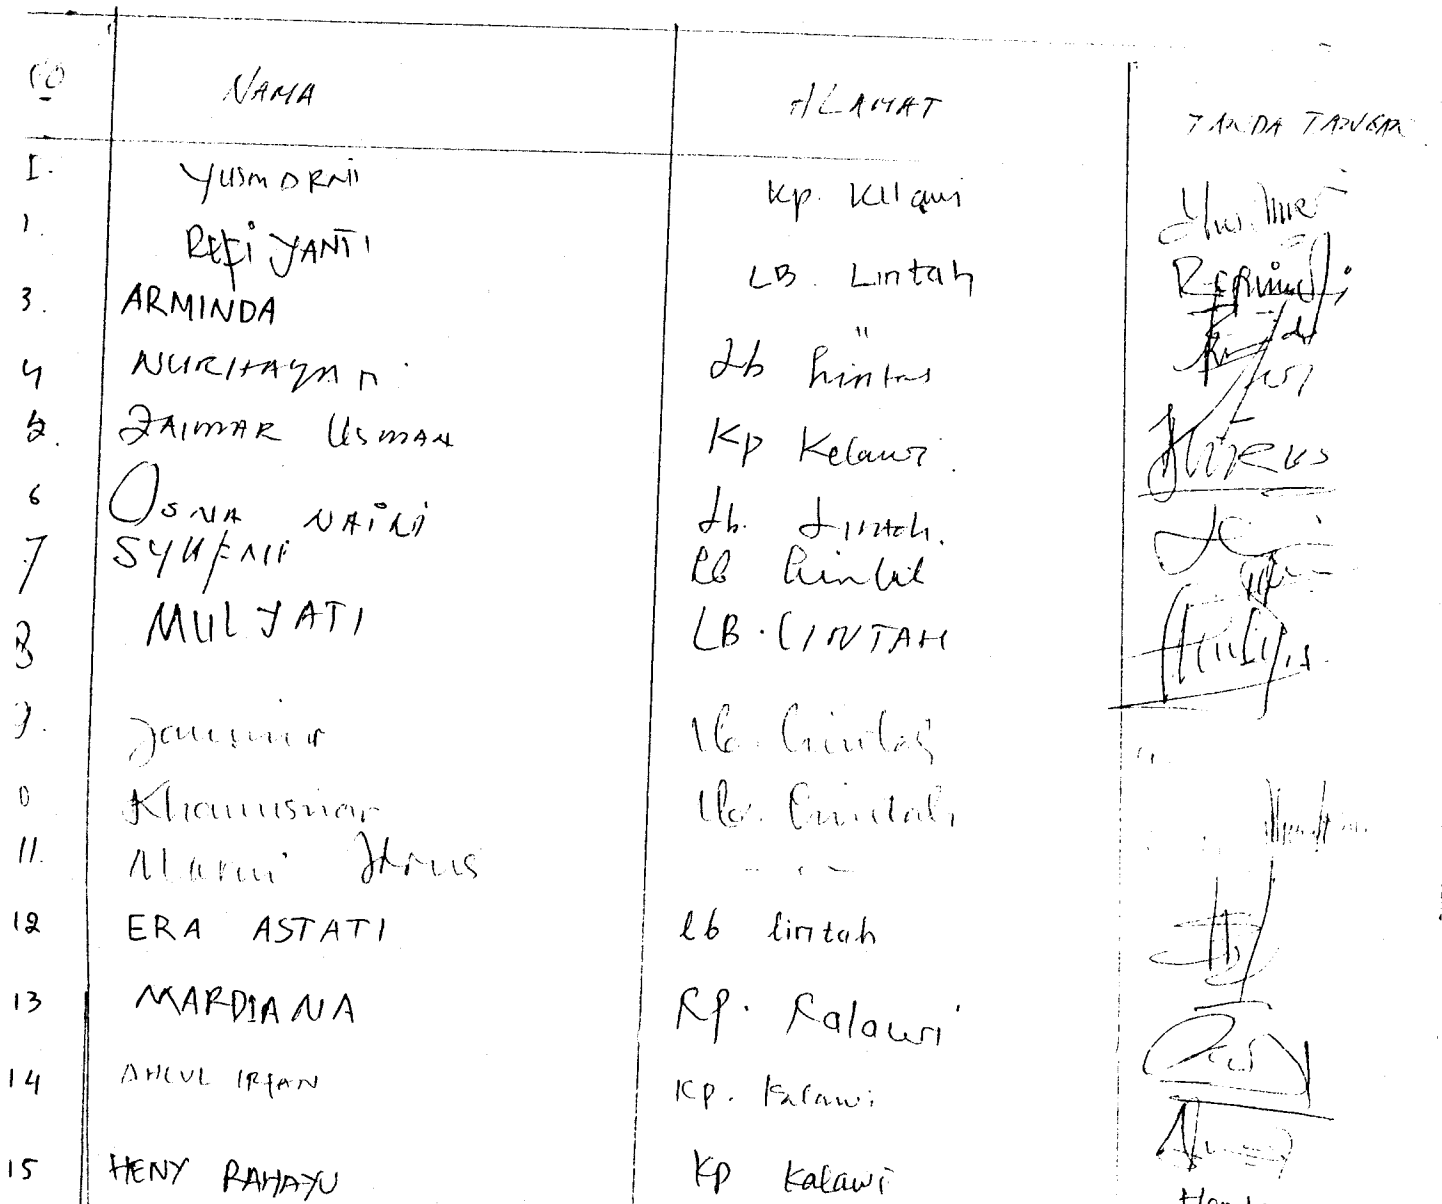 NO NAMA ALAMAT TANDA TANGAN
1. YUSMARNI Kp. Kelawi
REFI YANTI LB. Lintah
3. ARMINDA "
4 NURHAYATI Lb Lintah
5. ZAIMAR USMAN Kp Kelawi.
6 OSNA NAINI Lb. Lintah.
7 SYUFNI Lb Lintah
8 MULYATI LB. LINTAH
9. Lb. Lintah
Khamisnar Lb. Lintah
11. Marni Idrus
12 ERA ASTATI Lb lintah
13 MARDIANA Kp. Kalawi
14 AHLUL IRFAN KP. Kalawi
15 HENY RAHAYU Kp Kalawi